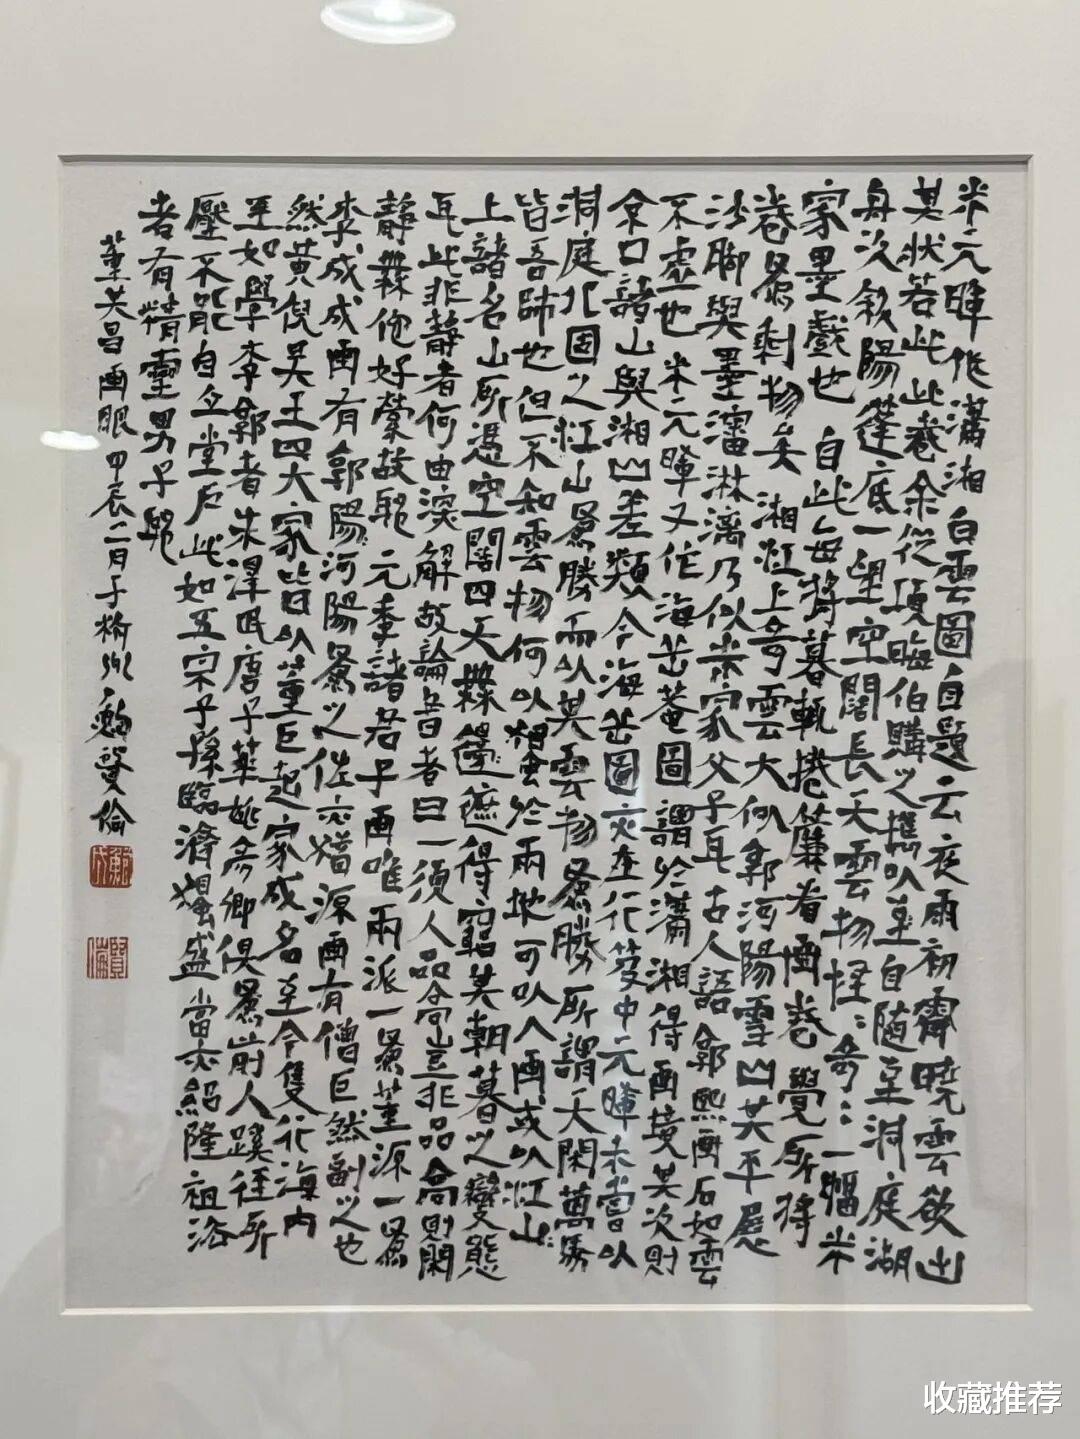 米元暉作瀟湘白雲圖自題云夜雨初霽曉雲欲出
其狀若此此卷余從項晦伯購之攜以至自隨至洞庭湖
舟次斜陽篷底一望空闊長天雲物怪：奇：一幅米
家墨戲也 自此每將暮輒捲簾看畫卷 覺所將
卷為剩物矣 湘江上奇雲大似郭河陽雪山其平展
沙腳與墨瀋淋漓乃似米家父子耳古人語郭熙畫石如雲
不虛也 米元暉又作海岳菴圖謂於瀟湘得畫境其次則
京口諸山與湘山差類今海岳圖亦在行笈中元暉未嘗以
洞庭北固之江山為勝而以其雲物為勝所謂天閑萬馬
皆吾師也但不知雲物何以獨於兩地可以入畫或以江山
上諸名山所憑空闊四天無邊遮得窮其朝暮之變態
耳此非靜者何由深解故論音者曰一須人品高豈非品高則閑
靜無他好縈故耶 元季諸君子畫唯兩派一為董源一為
李成成畫有郭陽河陽為之佐亦猶源畫有僧巨然副之也
然黃倪吳王四大家皆以董巨起家成名至今隻行海內
至如學李郭者朱澤民唐子華姚彥卿俱為前人蹊徑所
壓不能自立堂戶此如五宗子孫臨濟獨盛當亦紹隆祖法
者有精靈男子耶
董其昌畫眼 甲辰二月于 鮑賢倫
賢倫
收藏推荐